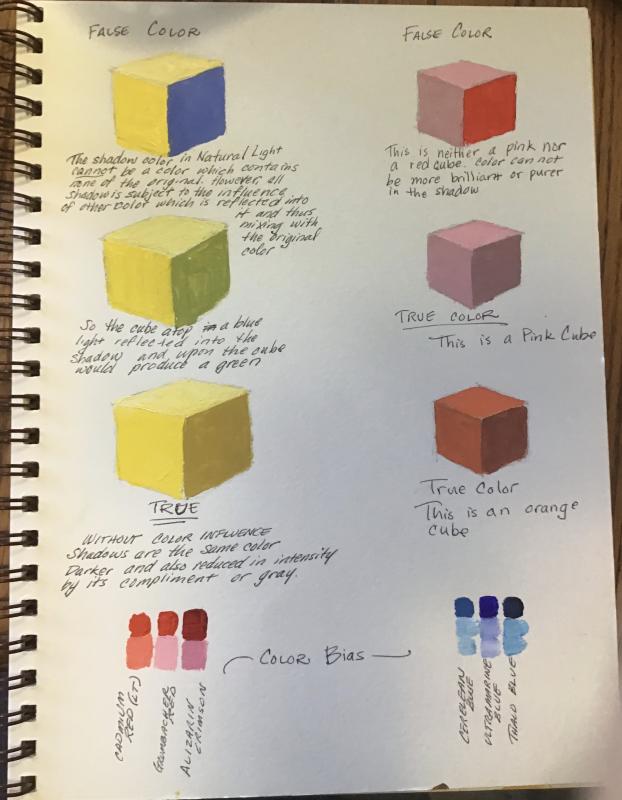 FALSE COLOR
The shadow color in Natural Light
cannot be a color which contains
none of the original. However, all
shadow is subject to the influence
of other color which is reflected into
it and thus
mixing with
the original
color
So the cube atop a blue
light reflected into the
shadow and upon the cube
would produce a green
TRUE
WITHOUT COLOR INFLUENCE
Shadows are the same color
Darker and also reduced in intensity
by its compliment or gray.
FALSE COLOR
This is neither a pink nor
a red cube. Color can not
be more brilliant or purer
in the shadow
TRUE COLOR
This is a Pink Cube
True Color
This is an orange
cube
COLOR BIAS
CADMIUM
RED (LT)
GRUMBACHER
RED
ALIZARIN
CRIMSON
CERULEAN
BLUE
ULTRAMARINE
BLUE
THALO BLUE